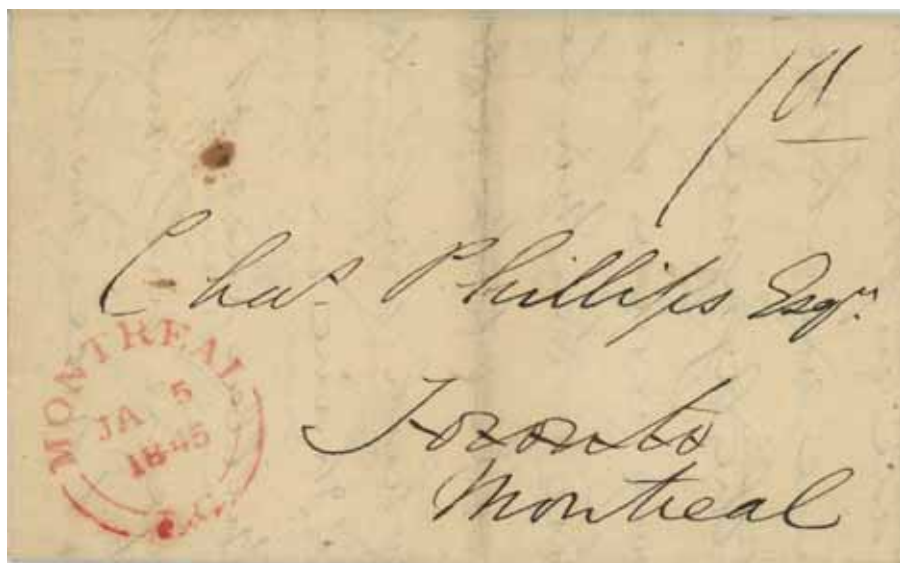 Chas. Phillips Esqr.
Toronto
Montreal
MONTREAL
JA 5
1845